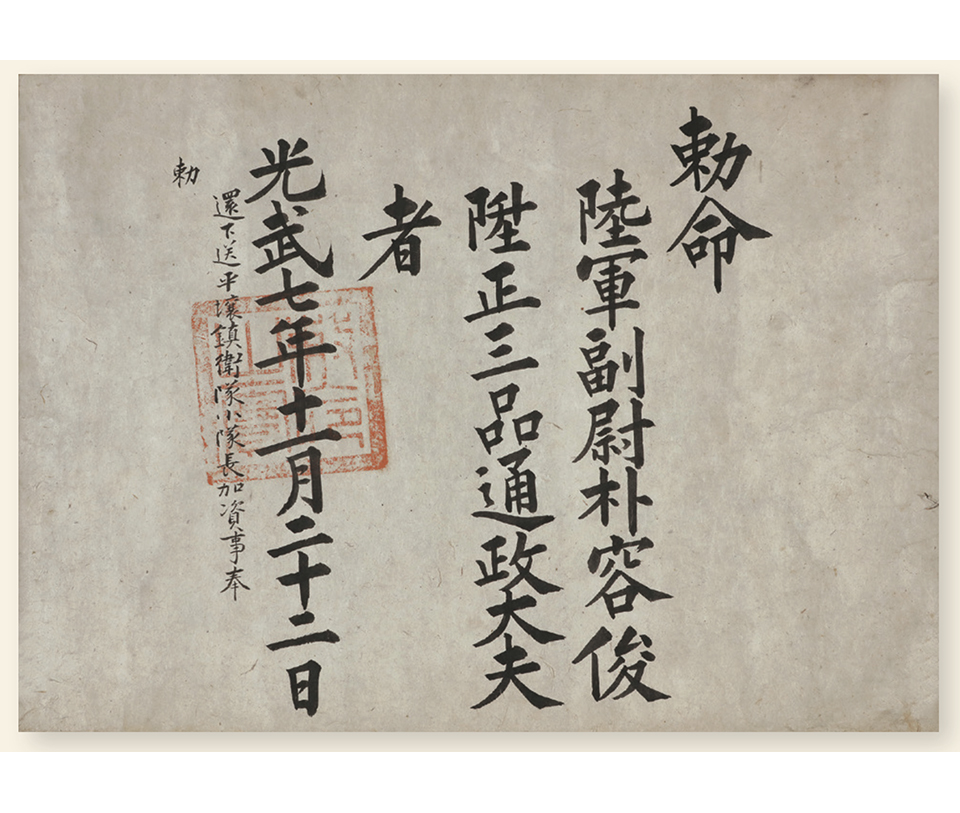 勅命
陸軍副尉朴容俊
陞正三品通政大夫
者
光武七年十一月二十二日
還下送平壤鎭衛隊小隊長加資事奉
勅